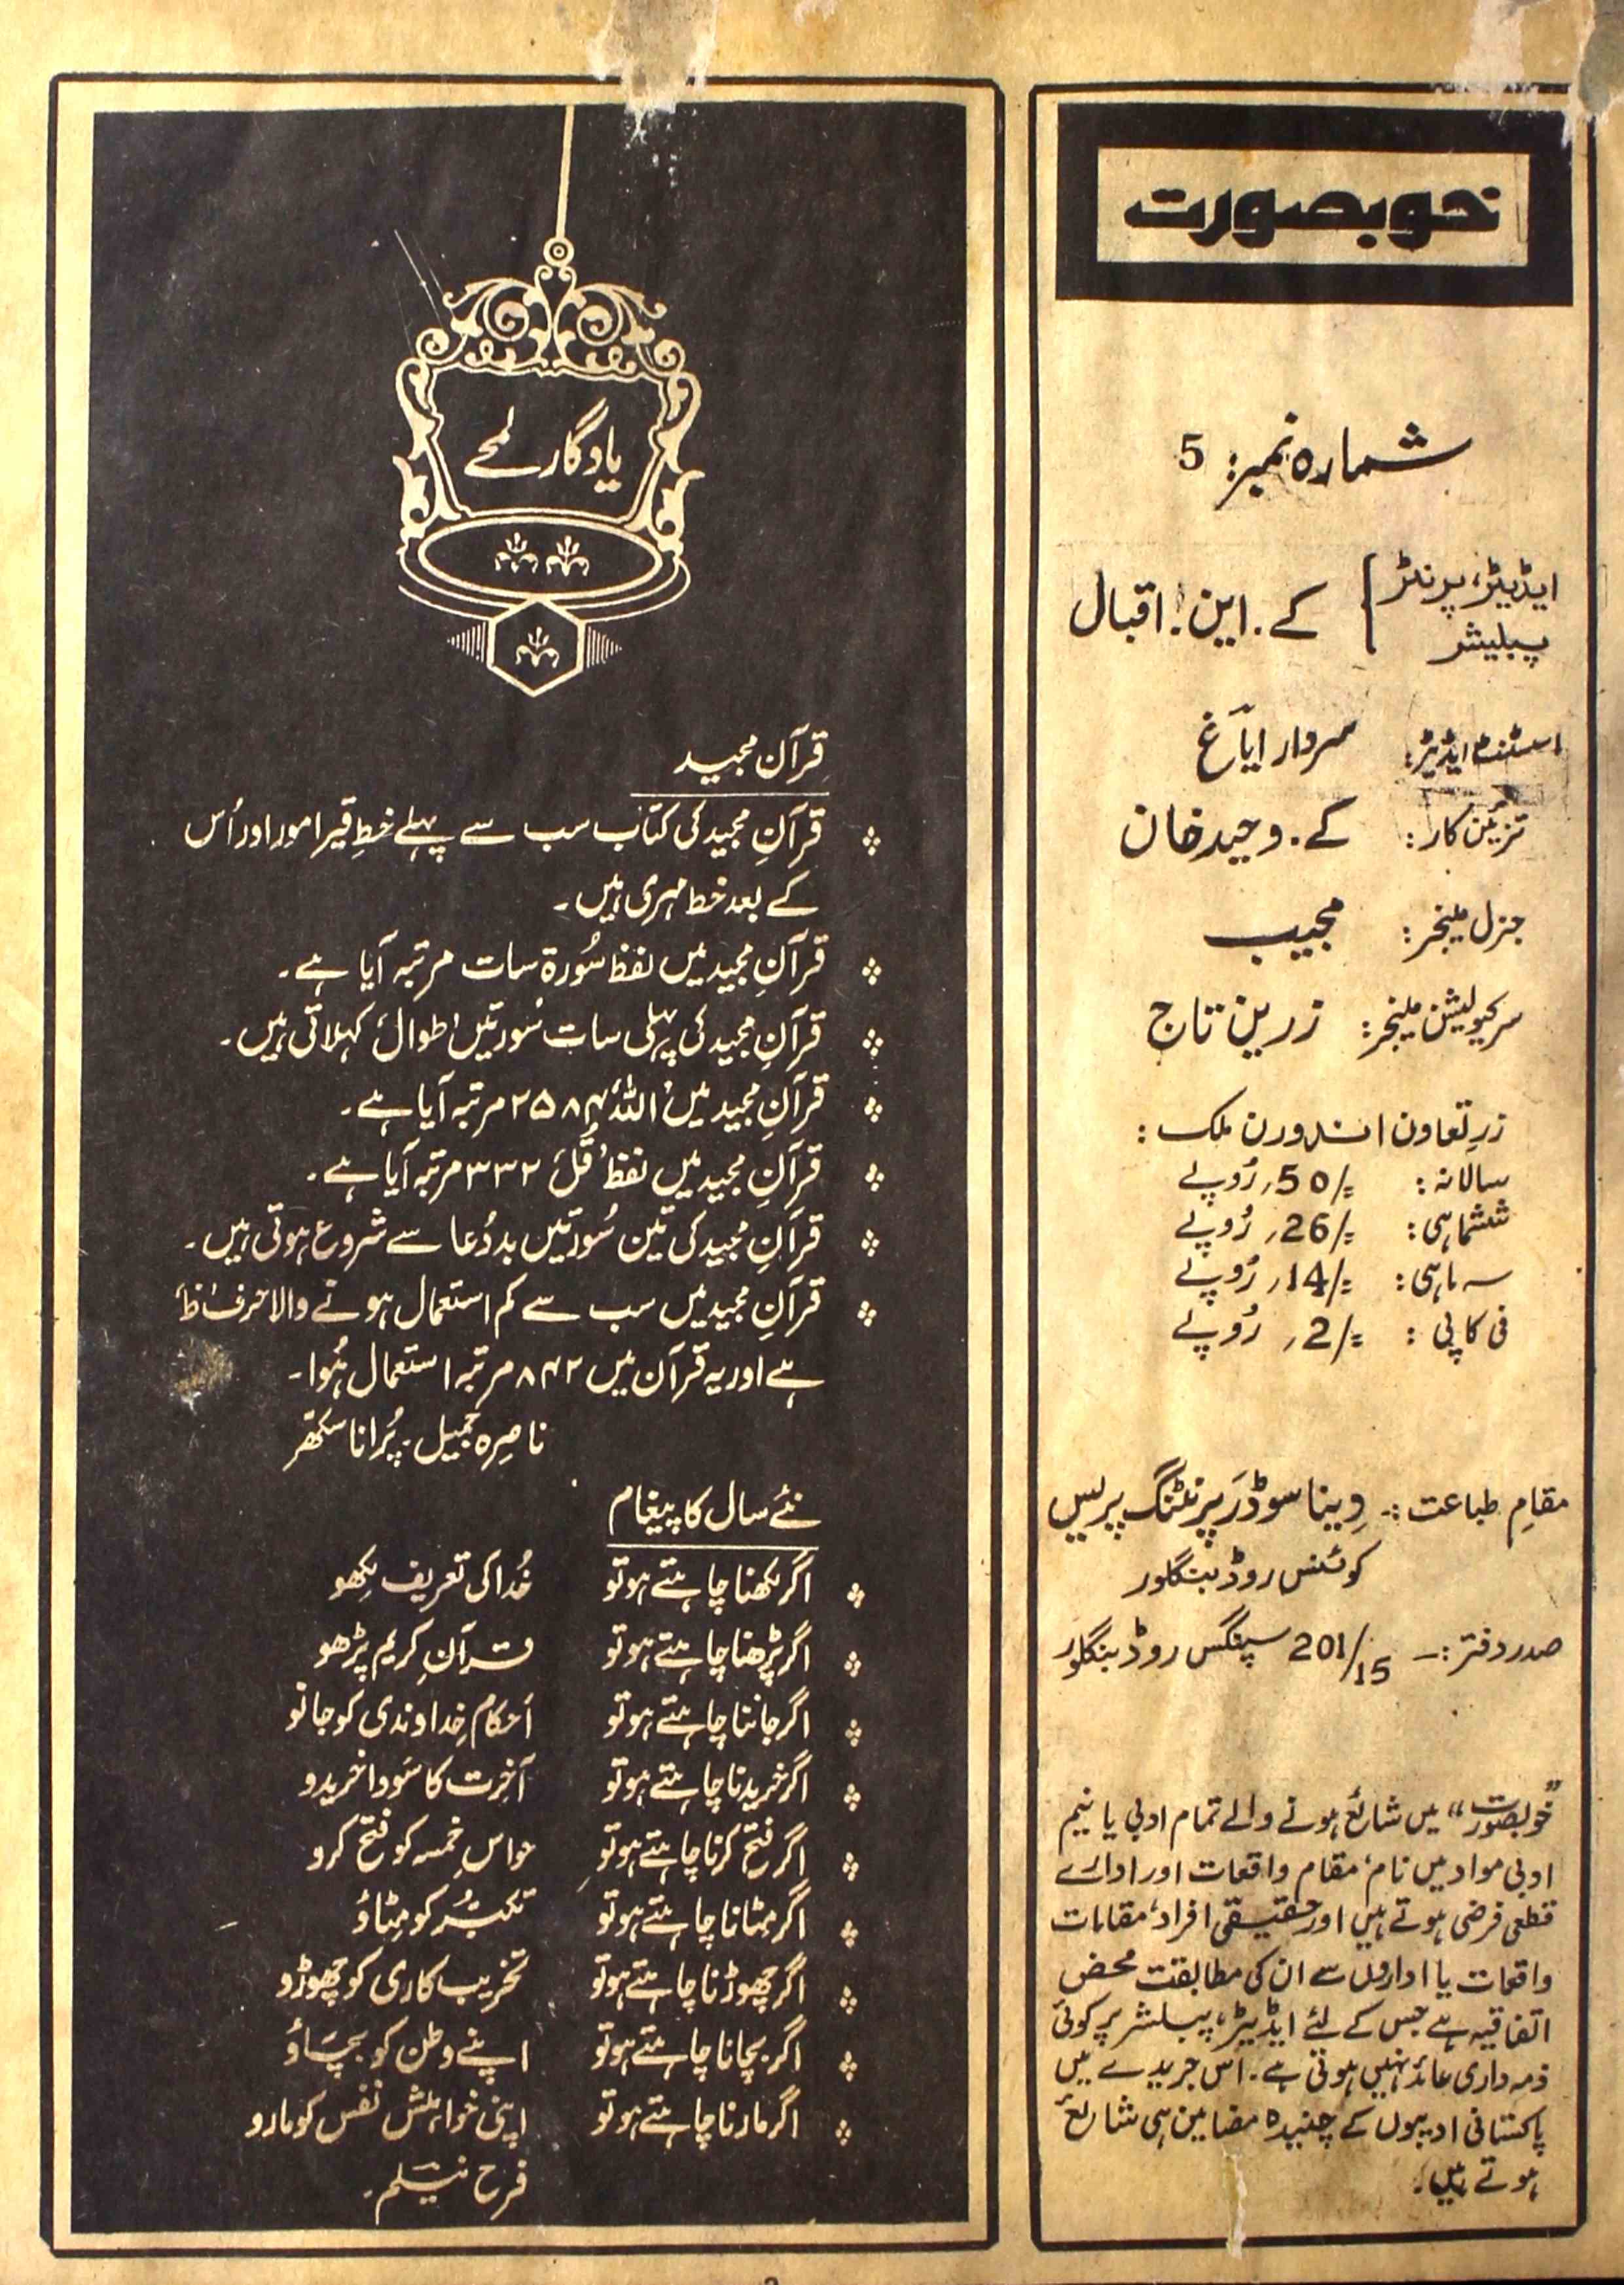 خوبصورت
شمارہ نمبر: 5
ایڈیٹر، پرنٹر
پبلیشر
کے. این. اقبال
اسسٹنٹ ایڈیٹر: سردار ایاغ
تزئین کار: کے. وحید خان
جنرل مینجر: مجیب
سرکیولیشن مینجر: زرین تاج
زرِ تعاون اندورن ملک:
سالانہ: 50/= روپے
ششماہی: 26/= روپے
سہ ماہی: 14/= روپے
فی کاپی: 2/= روپے
مقامِ طباعت:- وینا سوڈر پرنٹنگ پریس
کوئنس روڈ بنگلور
صدر دفتر:- 201/15 سپنگس روڈ بنگلور
”خوبصورت“ میں شائع ہونے والے تمام ادبی یا نیم
ادبی مواد میں نام، مقام واقعات اور ادارے
قطعی فرضی ہوتے ہیں اور حقیقی افراد، مقامات
واقعات یا اداروں سے ان کی مطابقت محض
اتفاقیہ ہے جس کے لئے ایڈیٹر، پبلشر پر کوئی
ذمہ داری عائد نہیں ہوتی ہے. اس جریدے میں
پاکستانی ادیبوں کے چنیدہ مضامین ہی شائع
ہوتے ہیں.
یادگار لمحے
قرآن مجید
قرآنِ مجید کی کتاب سب سے پہلے خطِ قیراموز اور اُس
کے بعد خط مہری ہیں۔
قرآنِ مجید میں لفظ سُورۃ سات مرتبہ آیا ہے۔
قرآنِ مجید کی پہلی سات سُورتیں 'طوال' کہلاتی ہیں۔
قرآنِ مجید میں 'اللہ' ۲۵۸۴ مرتبہ آیا ہے۔
قرآنِ مجید میں لفظ 'قُل' ۳۳۲ مرتبہ آیا ہے۔
قرآنِ مجید کی تین سُورتیں بددُعا سے شروع ہوتی ہیں۔
قرآنِ مجید میں سب سے کم استعمال ہونے والا حرف 'ظ'
ہے اور یہ قرآن میں ۸۴۲ مرتبہ استعمال ہُوا۔
ناصرہ جمیل۔ پُرانا سکھر
نئے سال کا پیغام
اگر لکھنا چاہتے ہو تو خُدا کی تعریف لکھو
اگر پڑھنا چاہتے ہو تو قرآنِ کریم پڑھو
اگر جاننا چاہتے ہو تو احکام خداوندی کو جانو
اگر خریدنا چاہتے ہو تو آخرت کا سودا خریدو
اگر فتح کرنا چاہتے ہو تو حواسِ خمسہ کو فتح کرو
اگر مٹانا چاہتے ہو تو تکبّر کو مٹاؤ
اگر چھوڑنا چاہتے ہو تو تخریب کاری کو چھوڑو
اگر بچانا چاہتے ہو تو اپنے وطن کو بچاؤ
اگر مارنا چاہتے ہو تو اپنی خواہش نفس کو مارو
فرح نیلم۔